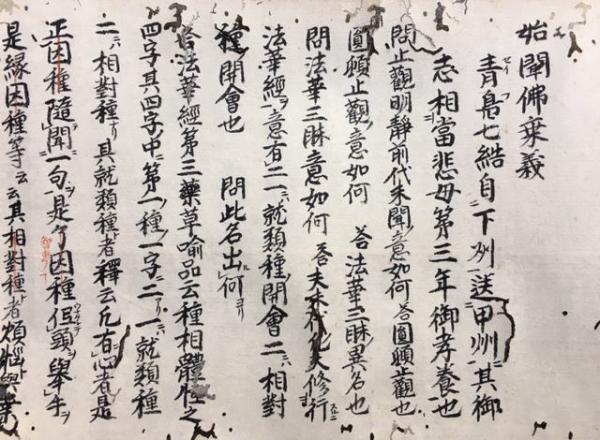 始聞佛乗義
青鳧七結自下州送甲州其御
志相當悲母第三年御孝養也
問止觀明靜前代未聞意如何 答圓頓止觀也
圓頓止觀意如何 答法華三昧異名也
問法華三昧意如何 答夫末代凡夫修行
法華經意有二一就類種開會二相對
種開會也 問此名出何
答法華經第三藥草喩品云種相體性之
四字其四字中第一種一字二一就類種
二相對種其就類種者釋云凡有心者是
正因種隨聞一句是了因種低頭擧手
是縁因種等云云其相對種者煩惱與業